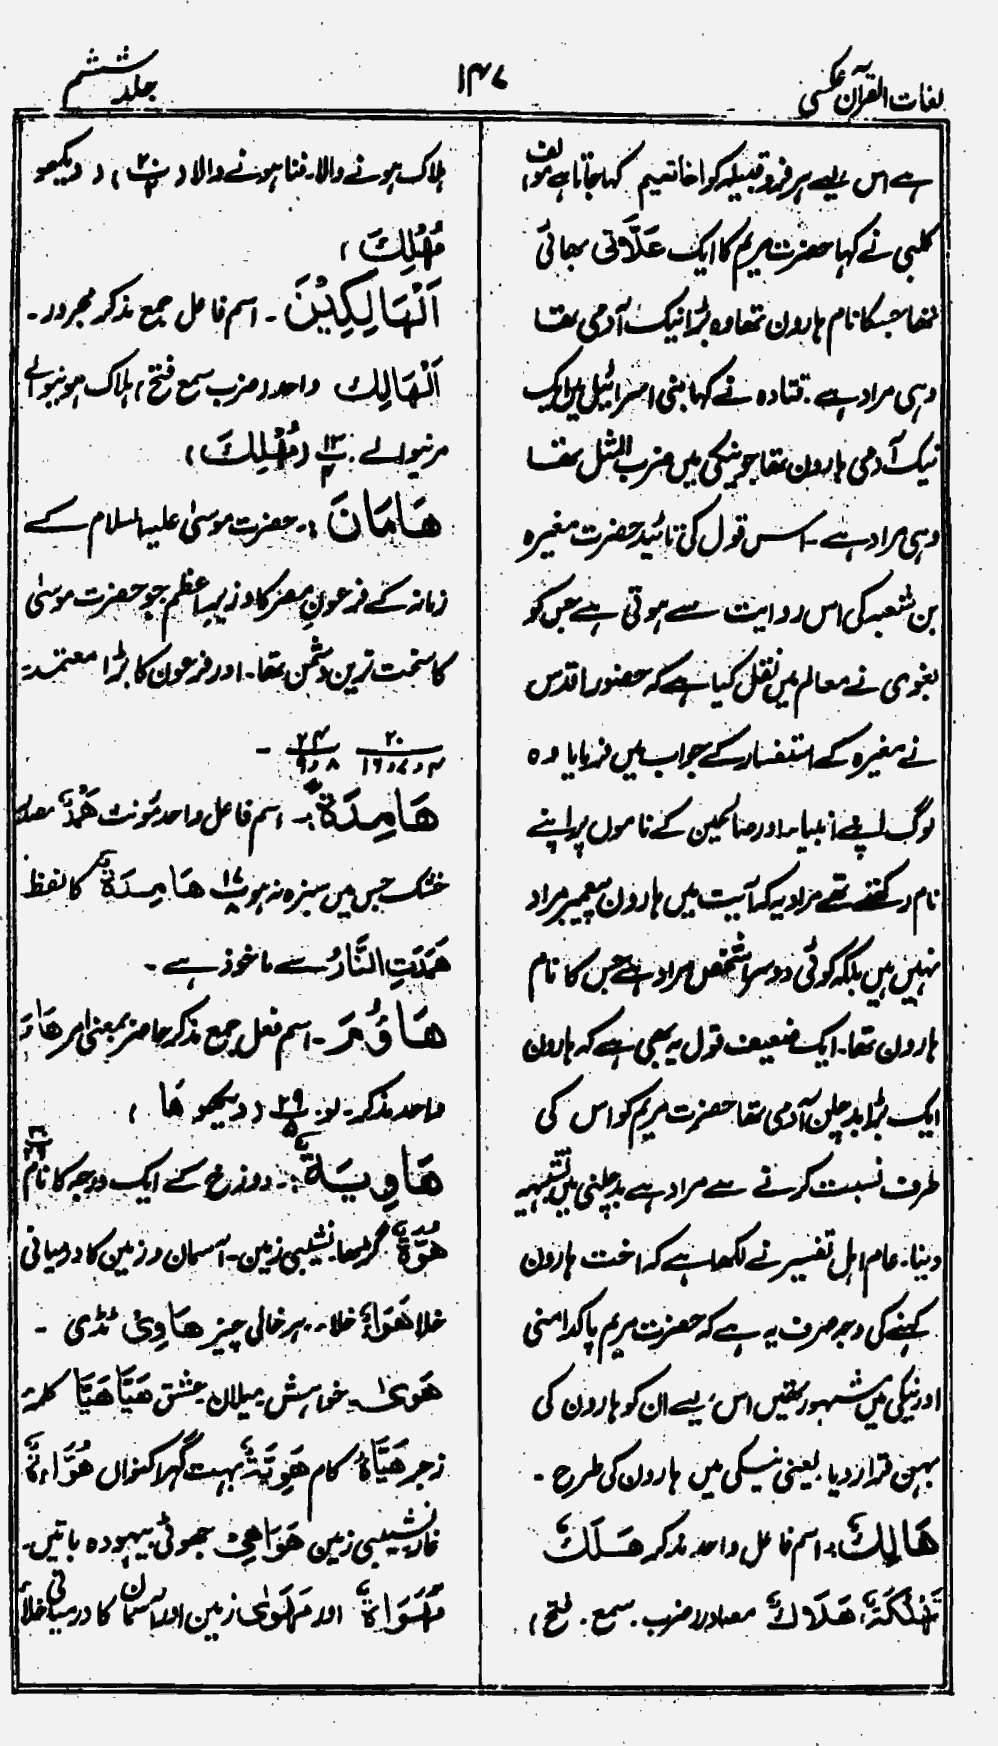 لغات القرآن عکسی
۱۴۷
جلد ششم
ہے اس لیے ہر فرد قبیلہ کو اخا تمیم کہا جاتا ہے مؤلف
کلبی نے کہا حضرت مریم کا ایک عَلَّاتی بھائی
تھا جسکا نام ہارون تھا وہ بڑا نیک آدمی تھا
وہی مراد ہے۔ قتادہ نے کہا بنی اسرائیل میں ایک
نیک آدمی ہارون تھا جو نیکی میں ضرب المثل تھا
وہی مراد ہے۔ اس قول کی تائید حضرت مغیرہ
بن شعبہ کی اس روایت سے ہوتی ہے جس کو
بغوی نے معالم میں نقل کیا ہے کہ حضور اقدس
نے مغیرہ کے استفسار کے جواب میں فرمایا وہ
لوگ اپنے انبیاء اور صالحین کے ناموں پر اپنے
نام رکھتے تھے مراد یہ کہ آیت میں ہارون پیغمبر مراد
نہیں ہیں بلکہ کوئی دوسرا شخص مراد ہے جس کا نام
ہارون تھا۔ ایک ضعیف قول یہ بھی ہے کہ ہارون
ایک بڑا بدچلن آدمی تھا حضرت مریم کو اس کی
طرف نسبت کرنے سے مراد ہے بدچلنی میں تشبیہ
دینا۔ عام اہل تفسیر نے لکھا ہے کہ اخت ہارون
کہنے کی وجہ صرف یہ ہے کہ حضرت مریم پاکدامنی
اور نیکی میں مشہور تھیں اس لیے ان کو ہارون کی
بہن قرار دیا یعنی نیکی میں ہارون کی طرح۔
ھَالِکٌ:۔ اسم فاعل واحد مذکر ھَلَکٌ
تَھْلُکَۃٌ، ھَلَاکٌ مصادر (ضرب۔ سمع۔ فتح)
ہلاک ہونے والا۔ فنا ہونے والا (۲۰) (دیکھو
مُھْلِکَ)
اَلْھَالِکِیْنَ۔ اسم فاعل جمع مذکر مجرور۔
اَلْھَالِک واحد (ضرب سمع فتح) ہلاک ہونیوالے
مرنیوالے۔ ۱۳/۴ (مُھْلِکَ)
ھَامَانَ:۔ حضرت موسیٰ علیہ السلام کے
زمانہ کے فرعونِ مصر کا وزیرِ اعظم جو حضرت موسیٰ
کا سخت ترین دشمن تھا۔ اور فرعون کا بڑا معتمد۔
۲۰/۴ و ۷ و ۱۶ ۲۴/۸ و ۹ ۔
ھَامِدَۃً:۔ اسم فاعل واحد مؤنث ھَمْدٌ مصدر
خشک جس میں سبزہ نہ ہو ۱۷/۸ ھَامِدَۃٌ کا لفظ
ھَمَدَتِ النَّارُ سے ماخوذ ہے۔
ھَاؤُمُ۔ اسم فعل جمع مذکر حاضر بمعنی امر ھَاءَ
واحد مذکر۔ لو۔ ۲۹/۵ (دیکھو ھَا)
ھَاوِیَۃٌ:۔ دوزخ کے ایک درجہ کا نام
ھُوَّۃٌ گڑھا نشیبی زمین۔ آسمان و زمین کا درمیانی
خلا ھَوَاءٌ خلا۔ ہر خالی چیز ھَاوِیٌ ٹڈی ۔
ھَویٰ۔ خواہش۔ میلان۔ عشق ھَیَّا ھَیَّا کلمۂ
زجر ھَیَّاۃُ کام ھَوِیَّۃٌ بہت گہرا کنواں ھُوَّاءَۃٌ
غار نشیبی زمین ھَوَاھِیْ جھوٹی بیہودہ باتیں۔
مَھْوَاۃٌ اور مَھْوٰی زمین اور آسمان کا درمیانی خلاء